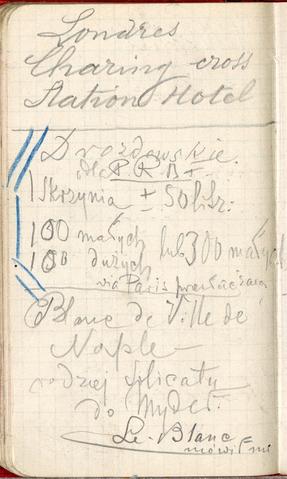 Londres
Charing cross
Station Hotel
Drozdowskie.
dla P.K.B.
1 Skrzynia ± 50 libr.
100 małych lub 300 małych
100 dużych
via Paris
Blanc de Ville de
Naple –
rodzaj silicaty
do Mydeł.
Le-Blanc
mówił mi